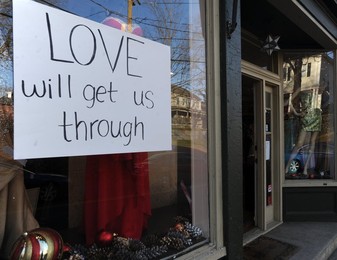 LOVE
will get us
through